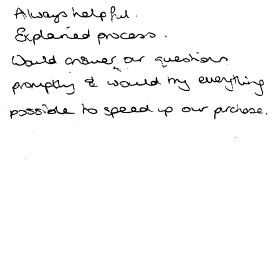 Always helpful.
Explained process.
Would answer our questions
promptly & would try everything
possible to speed up our purchase.